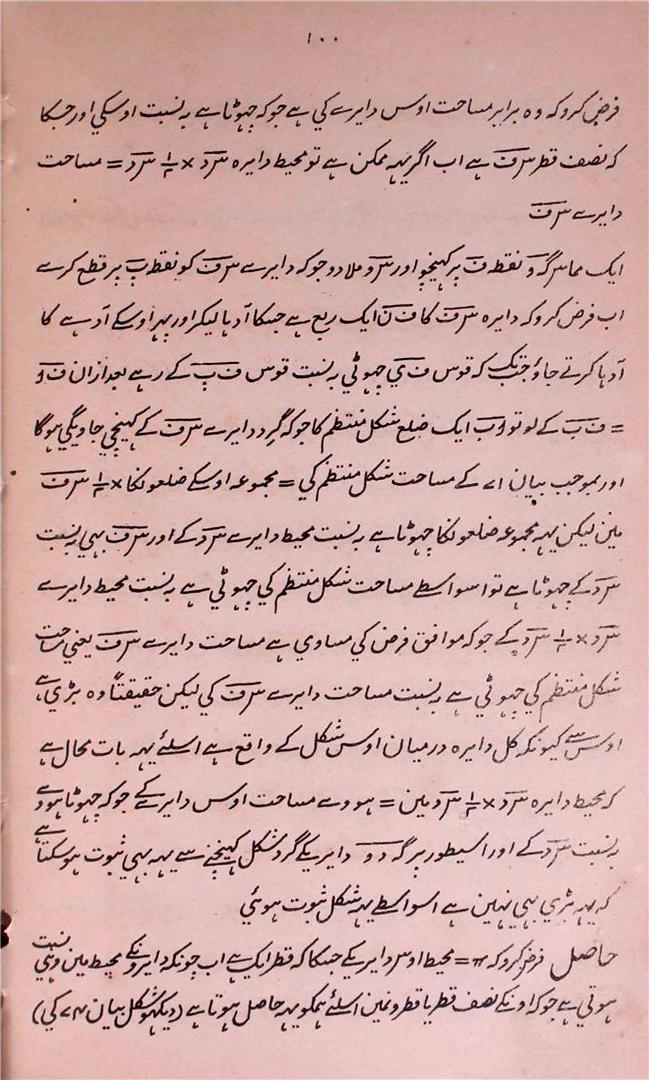 ۱۰۰
فرض کرو کہ وہ برابر مساحت اوس دایرے کی ہے جو کہ چہوٹا ہے بہ نسبت اوسکی اور جسکا
کہ نصف قطر س ف ہے اب اگر یہہ ممکن ہے تو محیط دایرہ س د × ۱/۲ س د = مساحت
دایرے س ف
ایک مماس گ و نقطہ ف پر کہینچو اور س و ملا دو جو کہ دایرے س ف کو نقطہ پ پر قطع کرے
اب فرض کرو کہ دایرہ س ف کا ف ن ایک ربع ہے جسکا آدہا لیکر اور پہر اوسکے آدہے کا
آدہا کرتے جاؤ جب تک کہ قوس ف ی چہوٹی بہ نسبت قوس ف پ کے رہے بعد ازان ف و
= ف ب کے لو تو و ب ایک ضلع شکل منتظم کا جو کہ گرد دایرے س ف کے کہینچی جاویگی ہوگا
اور بموجب بیان ۷۱ کے مساحت شکل منتظم کی = مجموعہ اوسکے ضلعونکا × ۱/۲ س ف
مین لیکن یہہ مجموعہ ضلعونکا چہوٹا ہے بہ نسبت محیط دایرے س د کے اور س ف بہی بہ نسبت
س د کے چہوٹا ہے تو اسواسطے مساحت شکل منتظم کی چہوٹی ہے بہ نسبت محیط دایرے
س د × ۱/۲ س د کے جو کہ موافق فرض کی مساوی ہے مساحت دایرے س ف یعنی مساحت
شکل منتظم کی چہوٹی ہے بہ نسبت مساحت دایرے س ف کی لیکن حقیقتاً وہ بڑی ہے
اوس سے کیونکہ کل دایرہ درمیان اوس شکل کے واقع ہے اسلئے یہہ بات محال ہے
کہ محیط دایرہ س د × ۱/۲ س د مین = ہووے مساحت اوس دایرے کے جو کہ چہوٹا ہووے
بہ نسبت س د کے اور اسیطور پر گرد دایریکے گرد شکل کہینچنے سے یہہ بہی ثبوت ہوسکتا ہے
کہ یہہ بڑی بہی نہین ہے اسواسطے یہہ شکل ثبوت ہوئی
حاصل فرض کرو کہ π = محیط اوس دایریکے جسکا کہ قطر ایک ہے اب چونکہ دایرونکے محیط مین وہی نسبت
ہوتی ہے جو کہ اونکے نصف قطر یا قطرونمین اسلئے ہمکو یہہ حاصل ہوتا ہے (دیکہو شکل بیان ۷۴ کی)